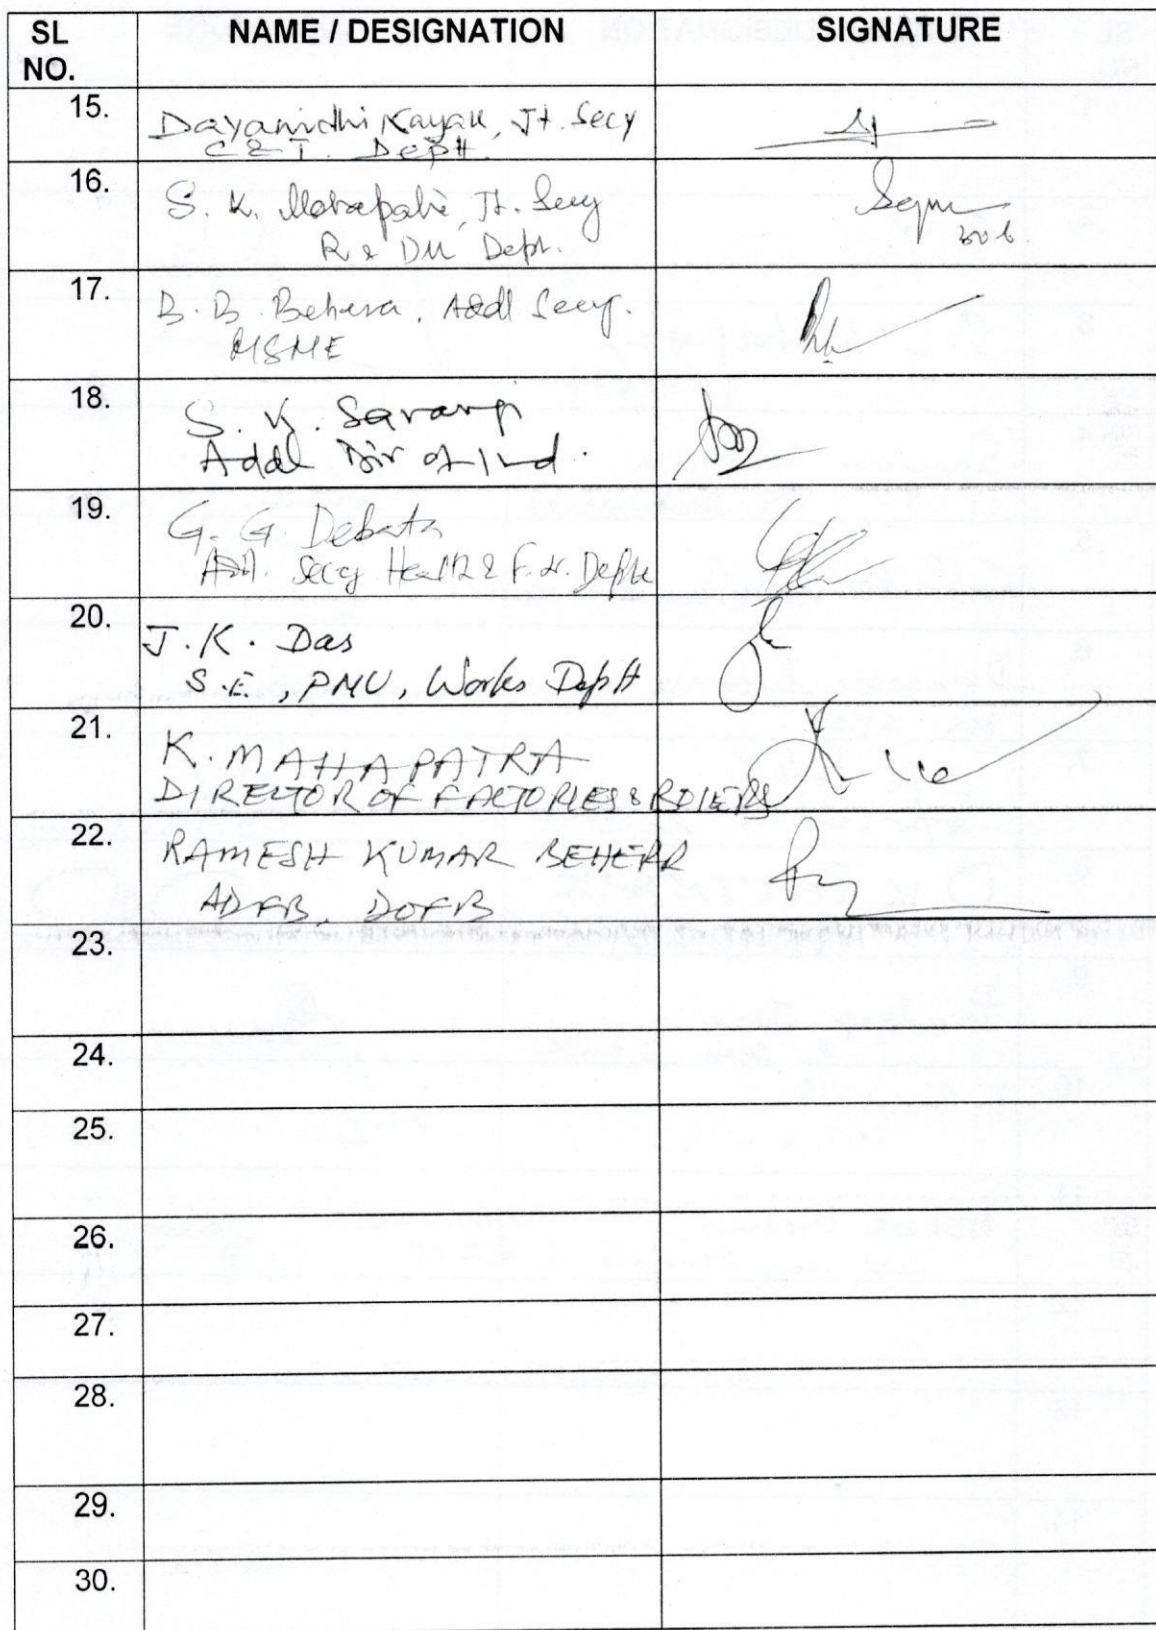 SL NO.
NAME / DESIGNATION
SIGNATURE
15.
Dayanidhi Nayak, Jt. Secy
C & T. Deptt.
16.
S. K. Mohapatra, Jt. Secy
R & DM Dept.
17.
B. B. Behera, Addl Secy.
MSME
18.
S. K. Sarangi
Addl Dir of Ind.
19.
G. G. Debata
Addl. Secy Health & F.W. Deptt
20.
J.K. Das
S.E., PMU, Works Deptt
21.
K. MAHAPATRA
DIRECTOR OF FACTORIES & BOILERS
22.
RAMESH KUMAR BEHERA
ADFB, DOFB
23.
24.
25.
26.
27.
28.
29.
30.